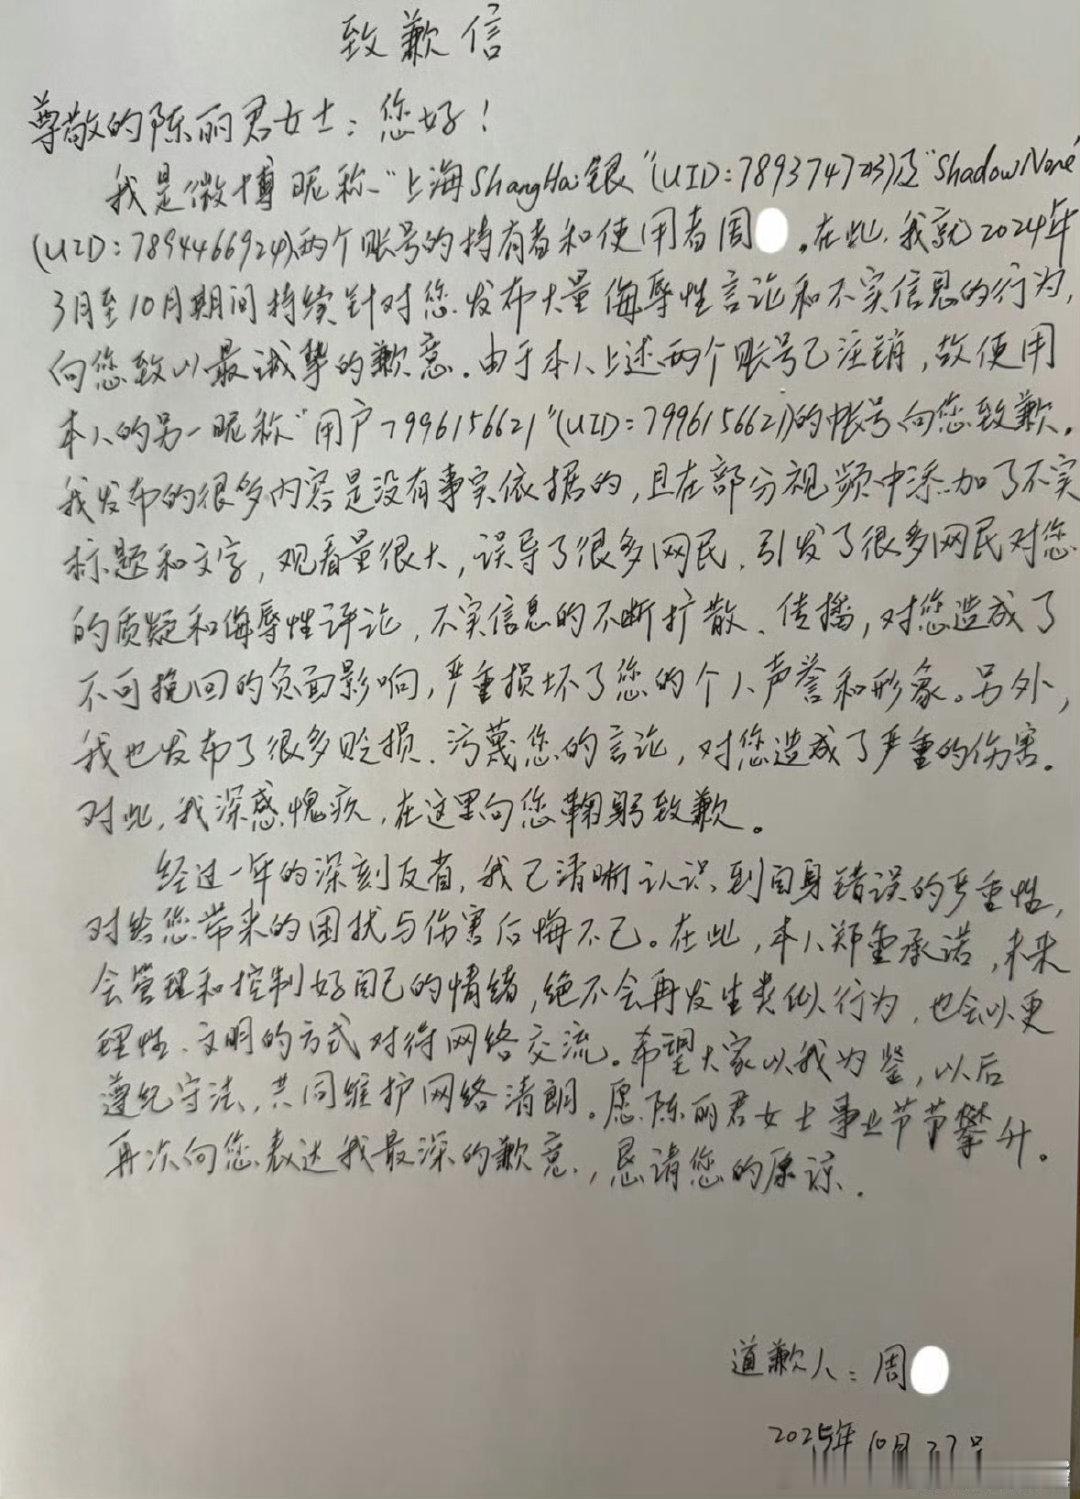 致歉信
尊敬的陈丽君女士：您好！
我是微博昵称“上海ShangHai银”(UID:7893747213)及“ShadowNone”
(UID:7894466924)两个账号的持有者和使用者周 。在此，我就2024年
3月至10月期间持续针对您发布大量侮辱性言论和不实信息的行为，
向您致以最诚挚的歉意。由于本人上述两个账号已注销，故使用
本人的另一昵称“用户7996156621”(UID:7996156621)的帐号向您致歉。
我发布的很多内容是没有事实依据的，且在部分视频中添加了不实
标题和文字，观看量很大，误导了很多网民，引发了很多网民对您
的质疑和侮辱性评论，不实信息的不断扩散、传播，对您造成了
不可挽回的负面影响，严重损坏了您的个人声誉和形象。另外，
我也发布了很多贬损、污蔑您的言论，对您造成了严重的伤害。
对此，我深感愧疚，在这里向您鞠躬致歉。
经过一年的深刻反省，我已清晰认识到自身错误的严重性，
对给您带来的困扰与伤害后悔不已。在此，本人郑重承诺，未来
会管理和控制好自己的情绪，绝不会再发生类似行为，也会以更
理性、文明的方式对待网络交流。希望大家以我为鉴，以后
遵纪守法，共同维护网络清朗。愿陈丽君女士事业节节攀升。
再次向您表达我最深的歉意，恳请您的原谅．
道歉人：周
2025年10月27日